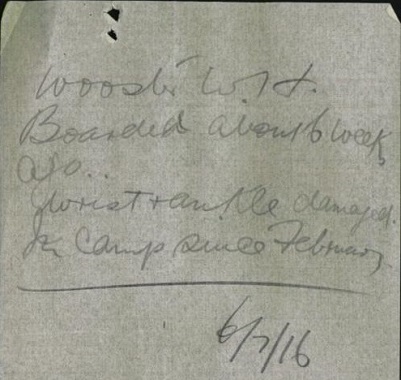 Wooster W. H.
Boarded about 6 weeks
ago..
Wrist & ankle damaged.
In Camp since February
6/7/16